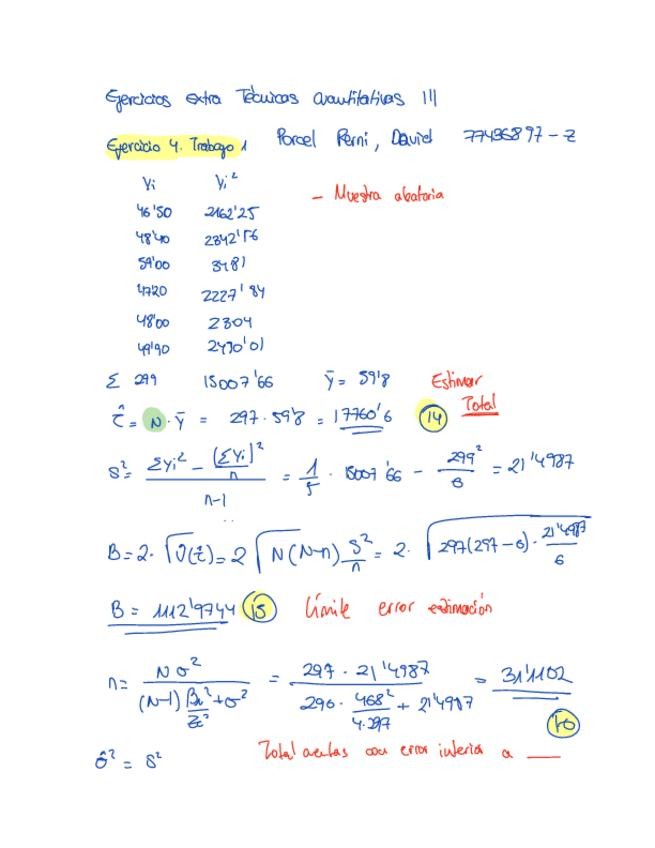 Ejercicios extra Técnicas cuantitativas III
Ejercicio 4. Trabajo 1 Porcel Perni, David 77436897-Z
Yi Yi²
- Muestra aleatoria
46'50 2162'25
48'40 2342'56
59'00 3481
47'20 2227'84
48'00 2304
49'90 2490'01
Σ 299 15007'66 ȳ = 59'8 Estimar
τ̂ = N·ȳ = 297·59'8 = 17760'6 14 Total
S² = (ΣYi² - (ΣYi)²/n) / (n-1) = 1/5 · 15007'66 - 299²/6 = 21'4987
B = 2·√V̂(τ̂) = 2√(N(N-n) S²/n) = 2·√(297(297-6)·21'4987/6)
B = 1112'9744 15 Límite error estimación
n = Nσ² / ((N-1) Bn²/Zc² + σ²) = 297·21'4987 / (296·468²/4·297 + 21'4987) = 31'1102
σ̂² = S² Total con error inferior a ___